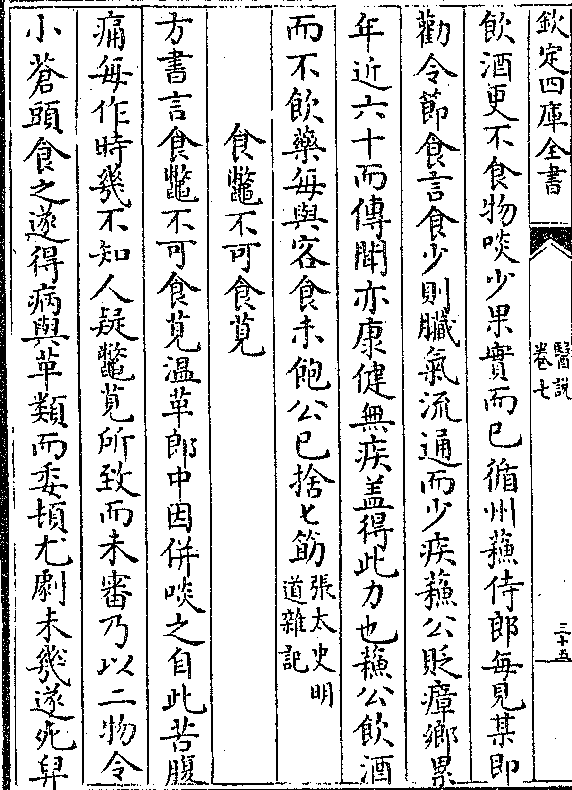 欽定四庫全書
醫說
卷七
三十五
飲酒更不食物啖少果實而已循州蘓侍郎每見某即
勸令節食言食少則臟氣流通而少疾蘓公貶瘴鄉累
年近六十而傳聞亦康健無疾盖得此力也蘓公飲酒
而不飲藥每與客食未飽公已捨匕筯張太史明
道雜記
食鼈不可食莧
方書言食鼈不可食莧温革郎中因併啖之自此苦腹
痛每作時幾不知人疑鼈莧所致而未審乃以二物令
小蒼頭食之遂得病與革類而委頓尤劇未幾遂死舁